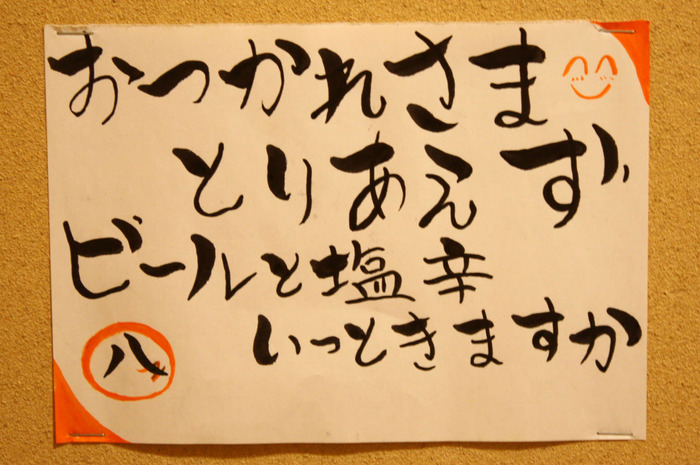 おつかれさま
とりあえず
ビールと塩辛
いっときますか
八